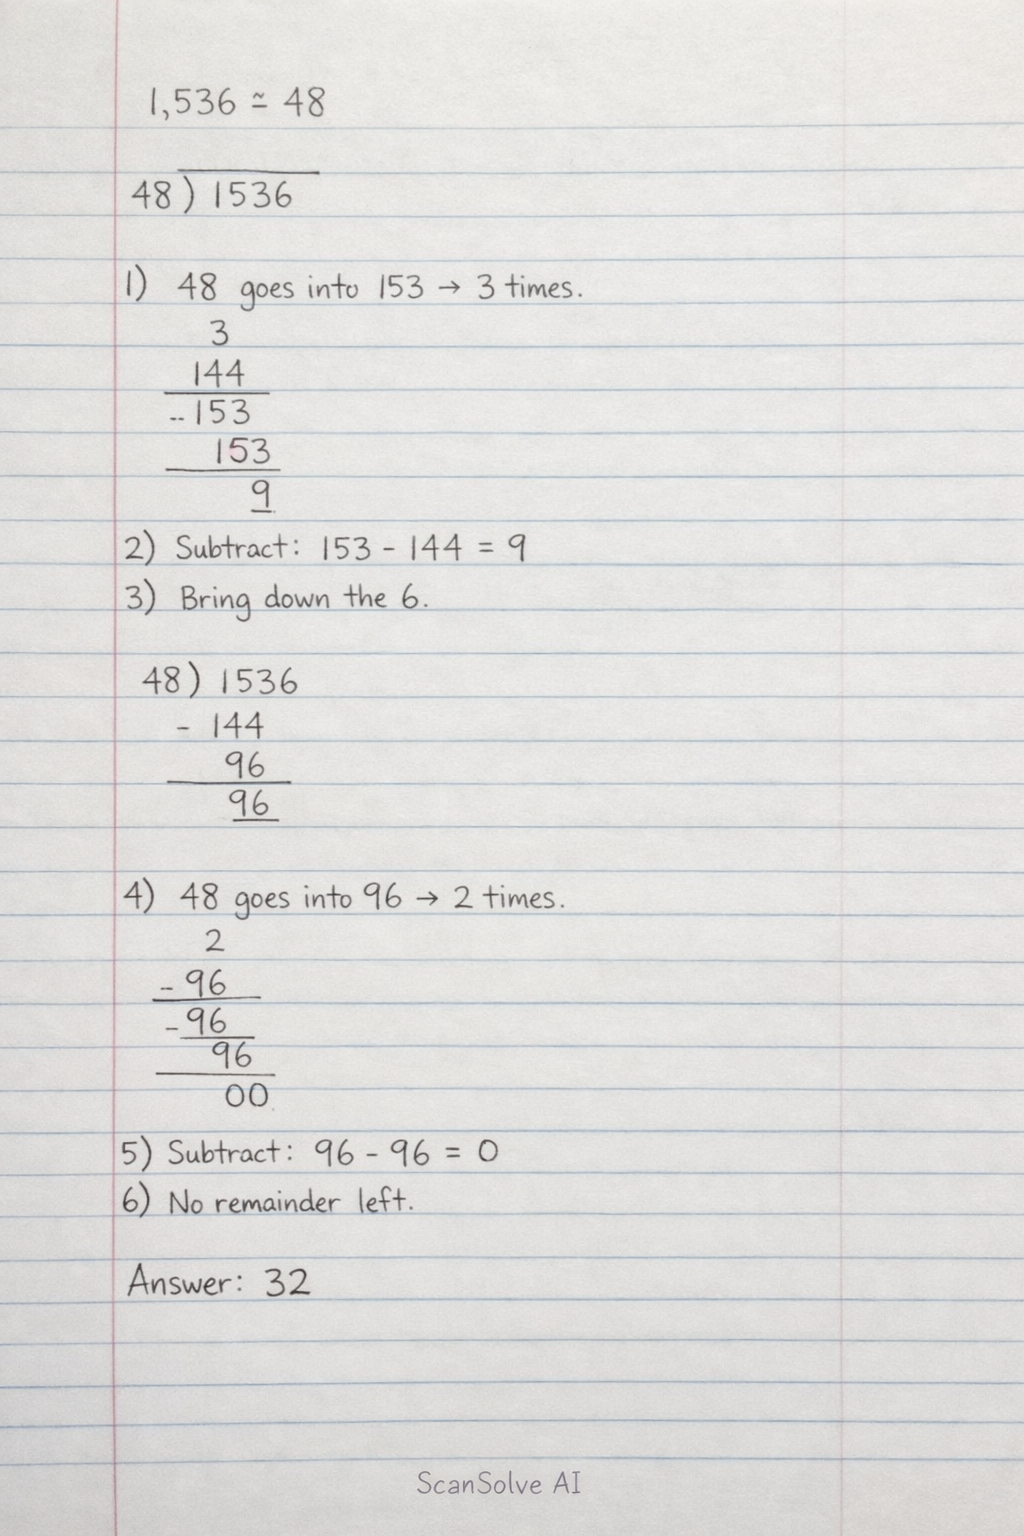 1,536 ≃ 48
48 ) 1536
1) 48 goes into 153 → 3 times.
3
144
--153
153
9
2) Subtract: 153 - 144 = 9
3) Bring down the 6.
48 ) 1536
- 144
96
96
4) 48 goes into 96 → 2 times.
2
- 96
- 96
96
00
5) Subtract: 96 - 96 = 0
6) No remainder left.
Answer: 32
ScanSolve AI